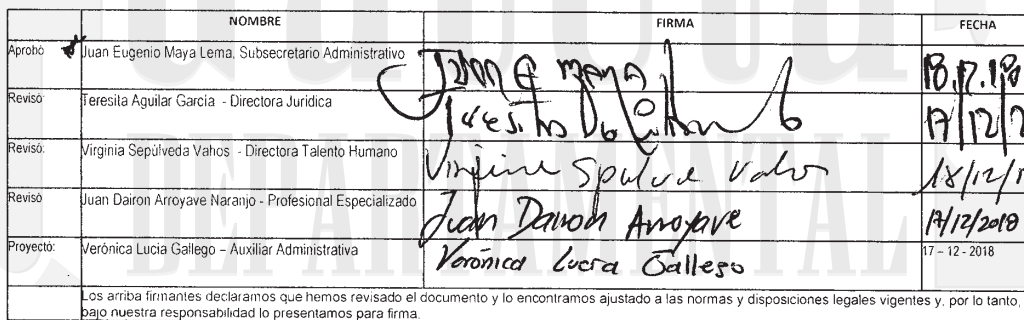 NOMBRE FIRMA FECHA
Aprobó Juan Eugenio Maya Lema, Subsecretario Administrativo Juan E Maya
Revisó Teresita Aguilar García - Directora Jurídica Teresita Aguilar 17/12/
Revisó: Virginia Sepúlveda Vahos - Directora Talento Humano Virginia Sepulveda Vahos 18/12/
Revisó Juan Dairon Arroyave Naranjo - Profesional Especializado Juan Dairon Arroyave 17/12/2018
Proyectó: Verónica Lucia Gallego – Auxiliar Administrativa Verónica Lucía Gallego 17 – 12 - 2018
Los arriba firmantes declaramos que hemos revisado el documento y lo encontramos ajustado a las normas y disposiciones legales vigentes y, por lo tanto,
bajo nuestra responsabilidad lo presentamos para firma.
DEPARTAMENTAL